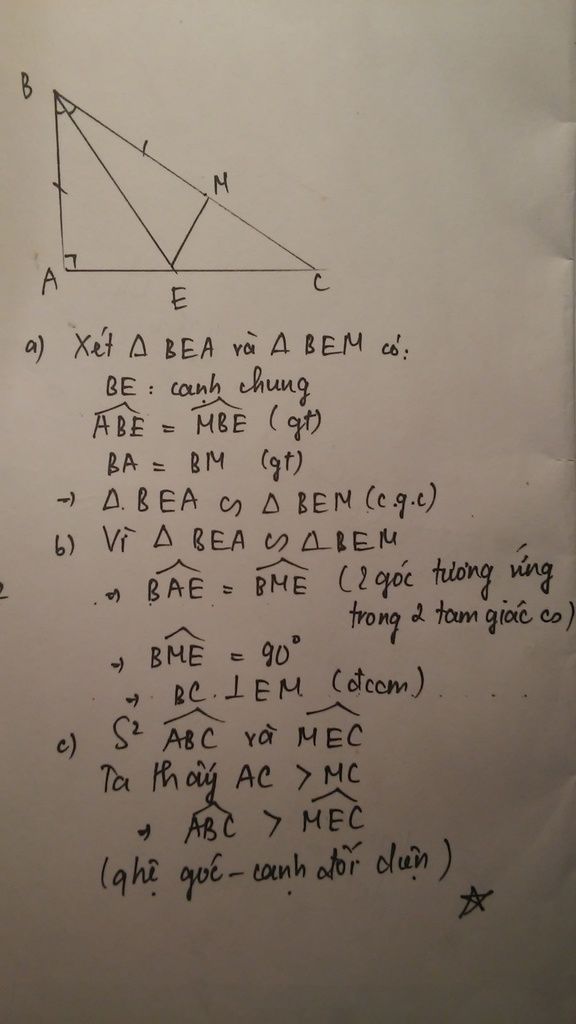 B
M
A
E
C
a) Xét Δ BEA và Δ BEM có:
BE : cạnh chung
ABE = MBE (gt)
BA = BM (gt)
→ Δ. BEA ∽ Δ BEM (c.g.c)
b) Vì Δ BEA ∽ Δ BEM
→ BAE = BME (2 góc tương ứng
trong 2 tam giác ∽)
→ BME = 90°
→ BC. ⊥ EM (đccm)
c) S² ABC và MEC
Ta thấy AC > MC
→ ABC > MEC
(qhệ góc – cạnh đối diện)